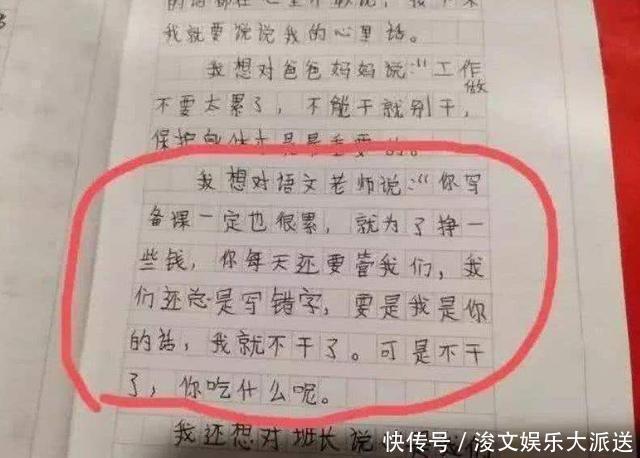 我就要说说我的心里话。
我想对爸爸妈妈说:“工作做
不要太累了，不能干就别干，
保护身体才是最重要的。
我想对语文老师说:“你写
备课一定也很累，就为了挣一
些钱，你每天还要管我们，我
们还总是写错字，要是我是你
的话，我就不干了。可是不干
了，你吃什么呢。
我还想对班长说
快传号/浚文娱乐大派送